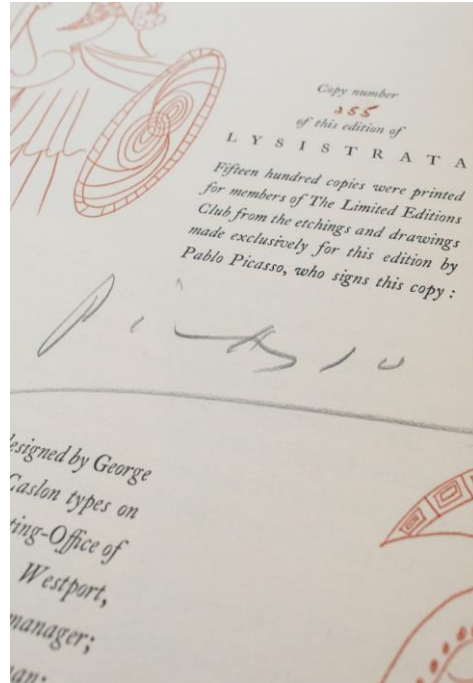 Copy number
255
of this edition of
LYSISTRATA
Fifteen hundred copies were printed
for members of The Limited Editions
Club from the etchings and drawings
made exclusively for this edition by
Pablo Picasso, who signs this copy :
Picasso
designed by George
Caslon types on
ting-Office of
Westport,
manager;